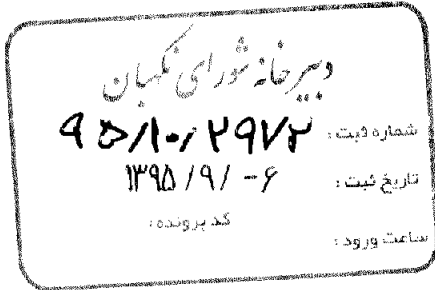 دبیرخانه شورای نگهبان
شماره ثبت : ۹۵/۱۰/۲۹۷۲
تاریخ ثبت : ۱۳۹۵/۹/-۶
کد پرونده :
ساعت ورود :